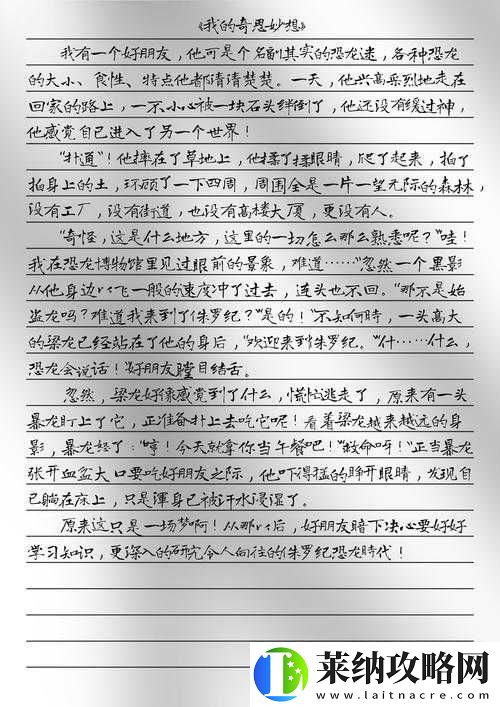 《我的奇思妙想》
我有一个好朋友，他可是个名副其实的恐龙迷，各种恐龙
的大小、食性、特点他都清清楚楚。一天，他兴高采烈地走在
回家的路上，一不小心被一块石头绊倒了，他还没有缓过神，
他感觉自己进入了另一个世界！
“扑通”！他摔在了草地上，他揉了揉眼睛，爬了起来，拍了
拍身上的土，环顾了一下四周，周围全是一片一望无际的森林，
没有工厂，没有街道，也没有高楼大厦，更没有人。
“奇怪，这是什么地方，这里的一切怎么那么熟悉呢？”哇！
我在恐龙博物馆里见过眼前的景象，难道……”忽然一个黑影
从他身边以飞一般的速度冲了过去，连头也不回。“那不是始
盗龙吗？难道我来到了侏罗纪？”“是的！”不知何時，一头高大
的梁龙已经站在了他的身后，“欢迎来到侏罗纪。”“什……什么，
恐龙会说话！”好朋友瞠目结舌。
忽然，梁龙好像感觉到了什么，慌忙逃走了，原来有一头
暴龙盯上了它，正准备扑上去吃它呢！看着梁龙越来越远的身
影，暴龙怒了：“哼！今天就拿你当午餐吧！”“救命呀！”正当暴龙
张开血盆大口要吃好朋友之际，他吓得猛的睁开眼睛，发现自
己躺在床上，只是渾身已被汗水浸湿了。
原来这只是一场梦啊！从那以后，好朋友暗下决心要好好
学习知识，更深入的研究令人向往的侏罗纪恐龙時代！
莱纳攻略网
www.laitnacre.com